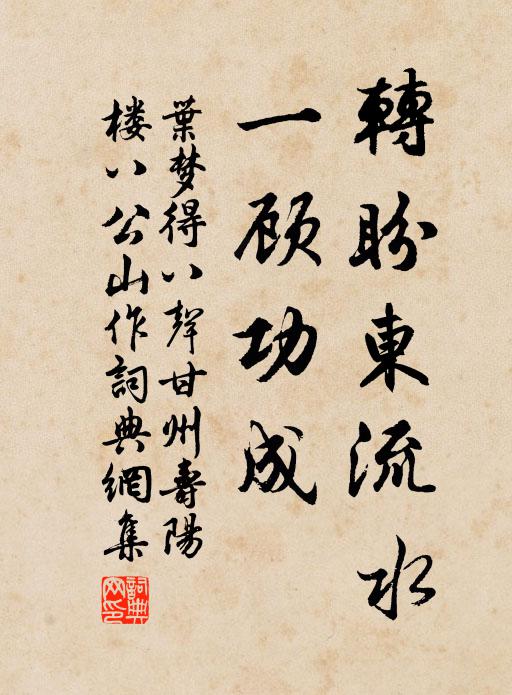 轉盼東流水
一顾功成
葉梦得八聲甘州壽陽
楼八公山作詞典網集
詞典网印